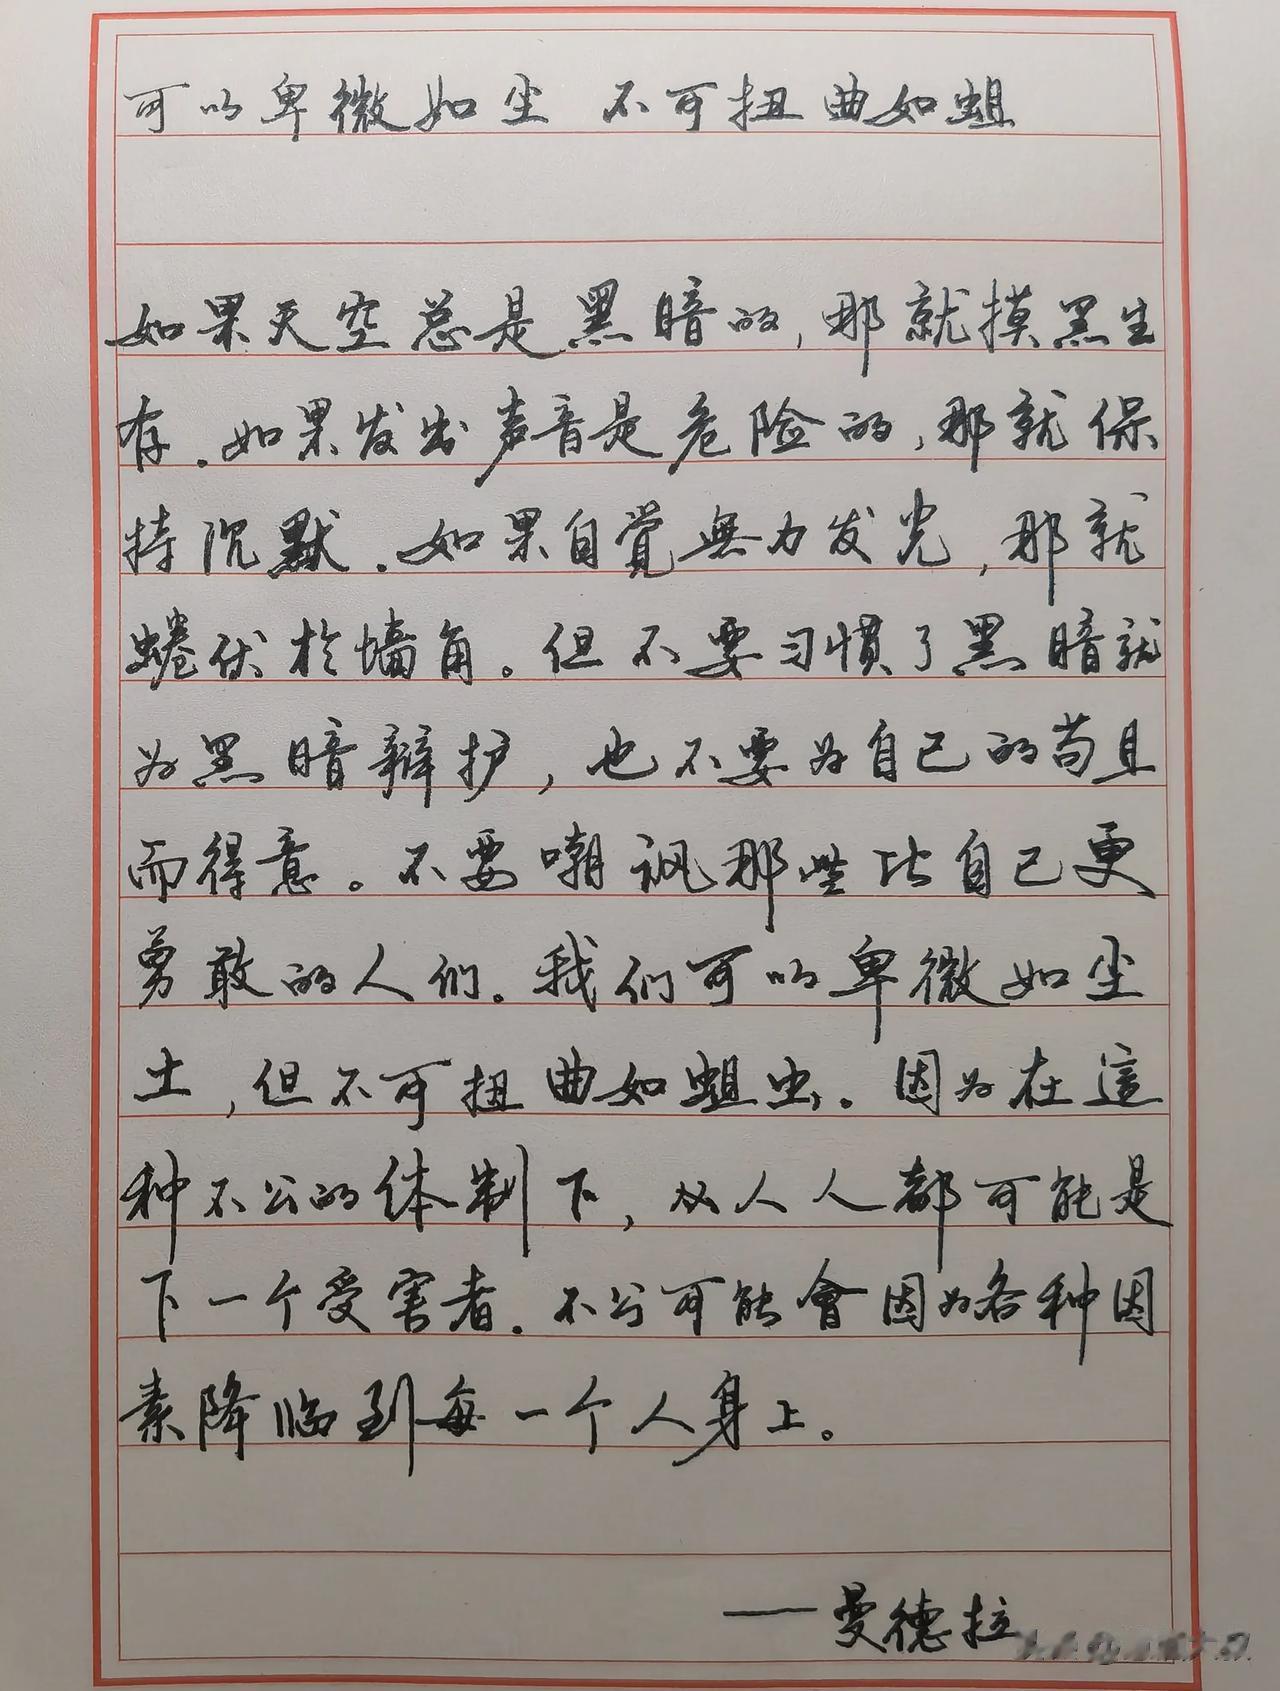 可以卑微如尘 不可扭曲如蛆
如果天空总是黑暗的,那就摸黑生
存.如果发出声音是危险的,那就保
持沉默.如果自覺無力发光,那就
蜷伏於墙角。但不要习惯了黑暗就
为黑暗辩护,也不要为自己的苟且
而得意。不要嘲讽那些比自己更
勇敢的人们。我们可以卑微如尘
土,但不可扭曲如蛆虫。因为在這
种不公的体制下,从人人都可能是
下一个受害者.不公可能會因为各种因
素降临到每一个人身上。
——曼德拉